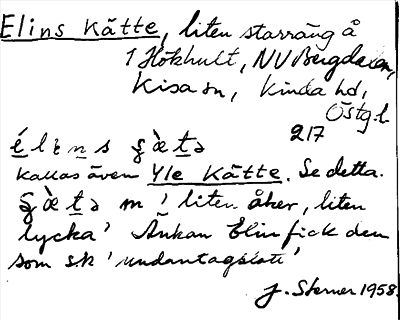 Elins Kätte, liten starräng å
1 Hökhult, NV Bergdalen,
Kisa sn, Kinda hd,
Östg.l.
217
é l ɩ n s ʂ æ̀ t ə
kallas även Yle Kätte. Se detta.
ʂ æ̀ t ə m 'liten åker, liten
lycka' Änkan Elin fick den
som s.k. 'undantagskate'
J. Sterner 1958.